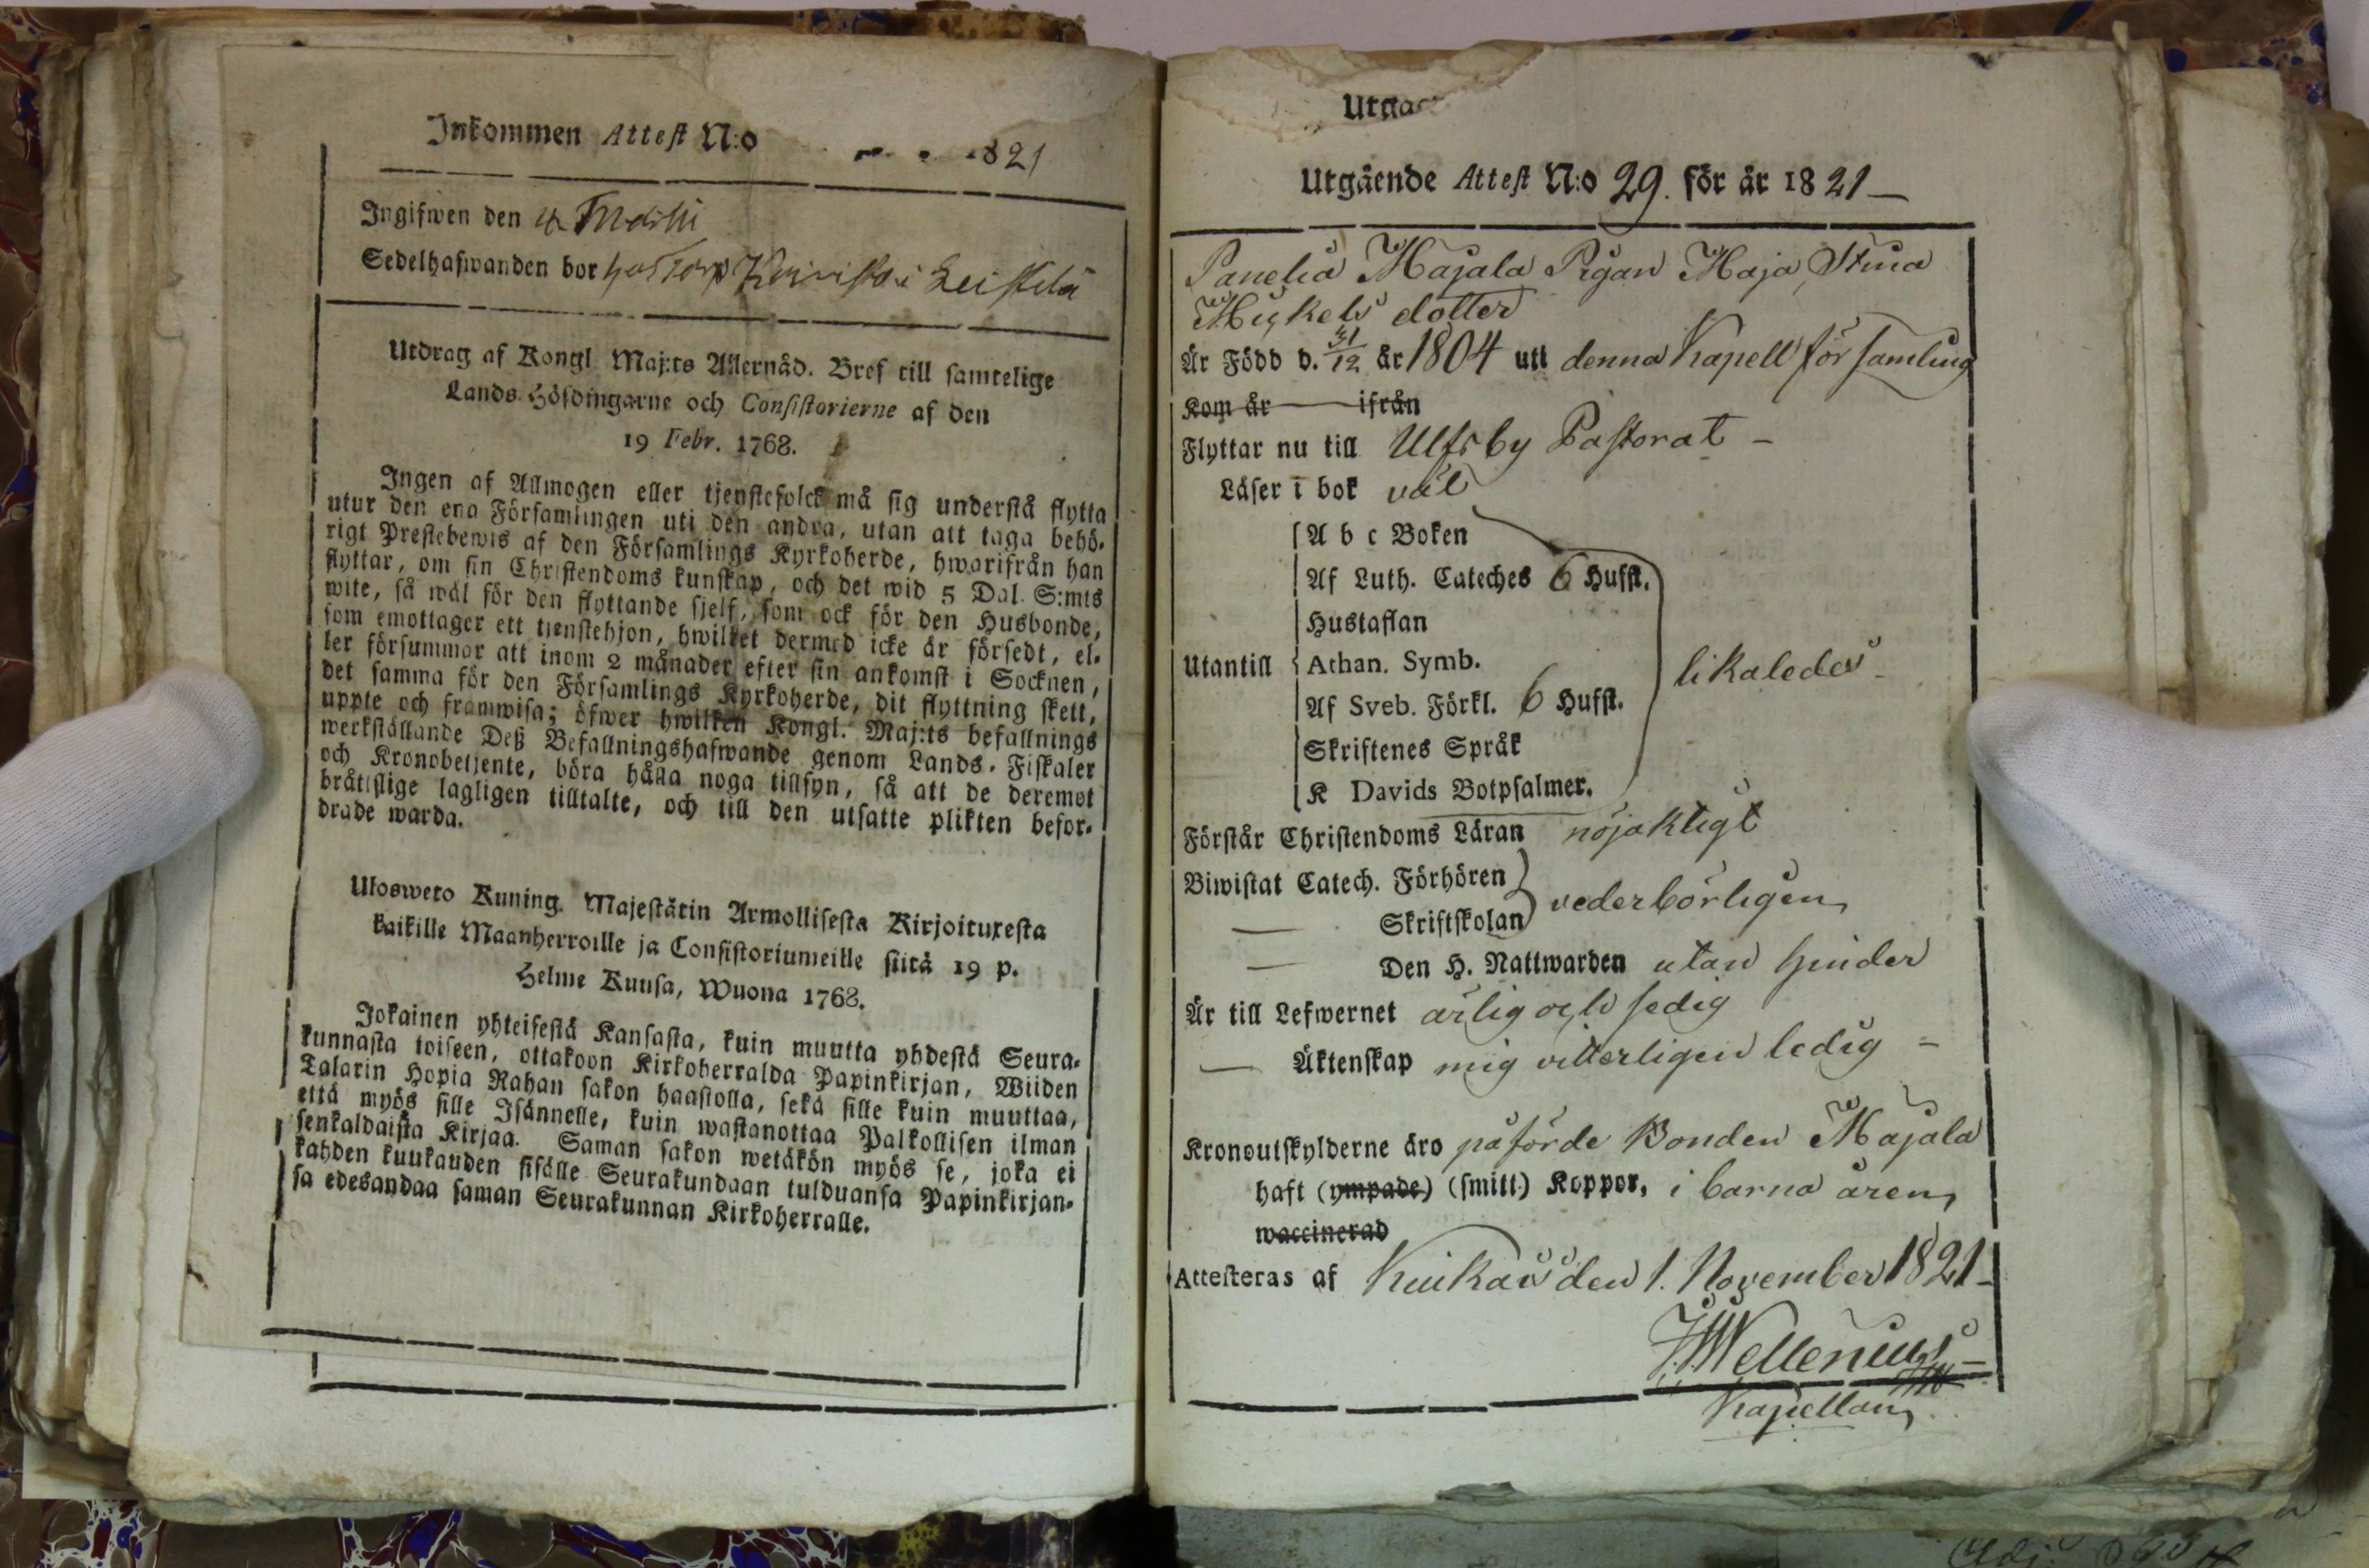 Inkommen Attest N:o 1821
Ingifwen den
Sedelhafwanden bor hos Torp i Leistilä
Utdrag af Kongl. Maj:ts Allernåd. Bref till samtelige
Lands-Höfdingarne och Consistorierne af den
19 Febr. 1768.
Ingen af Allmogen eller tjenstefolck må sig understå flytta
utur den ena Församlingen uti den andra, utan att taga behö-
rigt Prestebewis af den Församlings Kyrkoherde, hwarifrån han
flyttar, om sin Christendoms kunskap, och det wid 5 Dal. S:mts
wite, så wäl för den flyttande sjelf, som ock för den Husbonde,
som emottager ett tjenstehjon, hwilket dermed icke är försedt, el-
ler försummar att inom 2 månader efter sin ankomst i Socknen,
det samma för den Församlings Kyrkoherde, dit flyttning skett,
uppte och framwisa; öfwer hwilken Kongl. Maj:ts befallnings
werkställande Deß Befallningshafwande genom Lands-Fiskaler
och Kronobetjente, böra hålla noga tillsyn, så att de deremot
bråtislige lagligen tilltalte, och till den utsatte plikten befor-
drade warda.
Ulosweto Kuning. Majestätin Armollisesta Kirjoituxesta
kaikille Maanherroille ja Consistoriumeille siitä 19 p.
Helme Kuusa, Wuona 1768.
Jokainen yhteisestä Kansasta, kuin muutta yhdestä Seura-
kunnasta toiseen, ottakoon Kirkoherralda Papinkirjan, Wiiden
Talarin Hopia Rahan sakon haastolla, sekä sille kuin muuttaa,
että myös sille Isännelle, kuin wastanottaa Palkollisen ilman
senkaldaista Kirjaa. Saman sakon wetäkön myös se, joka ei
kahden kuukauden sisälle Seurakundaan tulduansa Papinkirjan-
sa edesandaa saman Seurakunnan Kirkoherralle.
Utgåe
Utgående Attest N:o 29. för år 1821
Panelia Majala Pigan Maja Stina
Mickels dotter
Är Född d. 31/12 år 1804 uti denna Kapell församling
Kom år ifrån
Flyttar nu till Ulfsby Pastorat
Läser i bok väl
A b c Boken
Af Luth. Cateches 6 Hufst.
Hustaflan
Utantill Athan. Symb. likaledes
Af Sveb. Förkl. 6 Hufst.
Skriftenes Språk
K Davids Botpsalmer.
Förstår Christendoms Läran nöjaktigt
Biwistat Catech. Förhören
Skriftskolan vederbörligen
Den H. Nattwarden utan hinder
Är till Lefwernet ärlig och sedig
Äktenskap mig vitterligen ledig
Kronoutskylderne äro påförde Bonden Majala
haft (ympade) (smitt) Koppor, i barna åren,
waccinerad
Attesteras af Kiukais den 1. November 1821
Wellenius
Kapellan